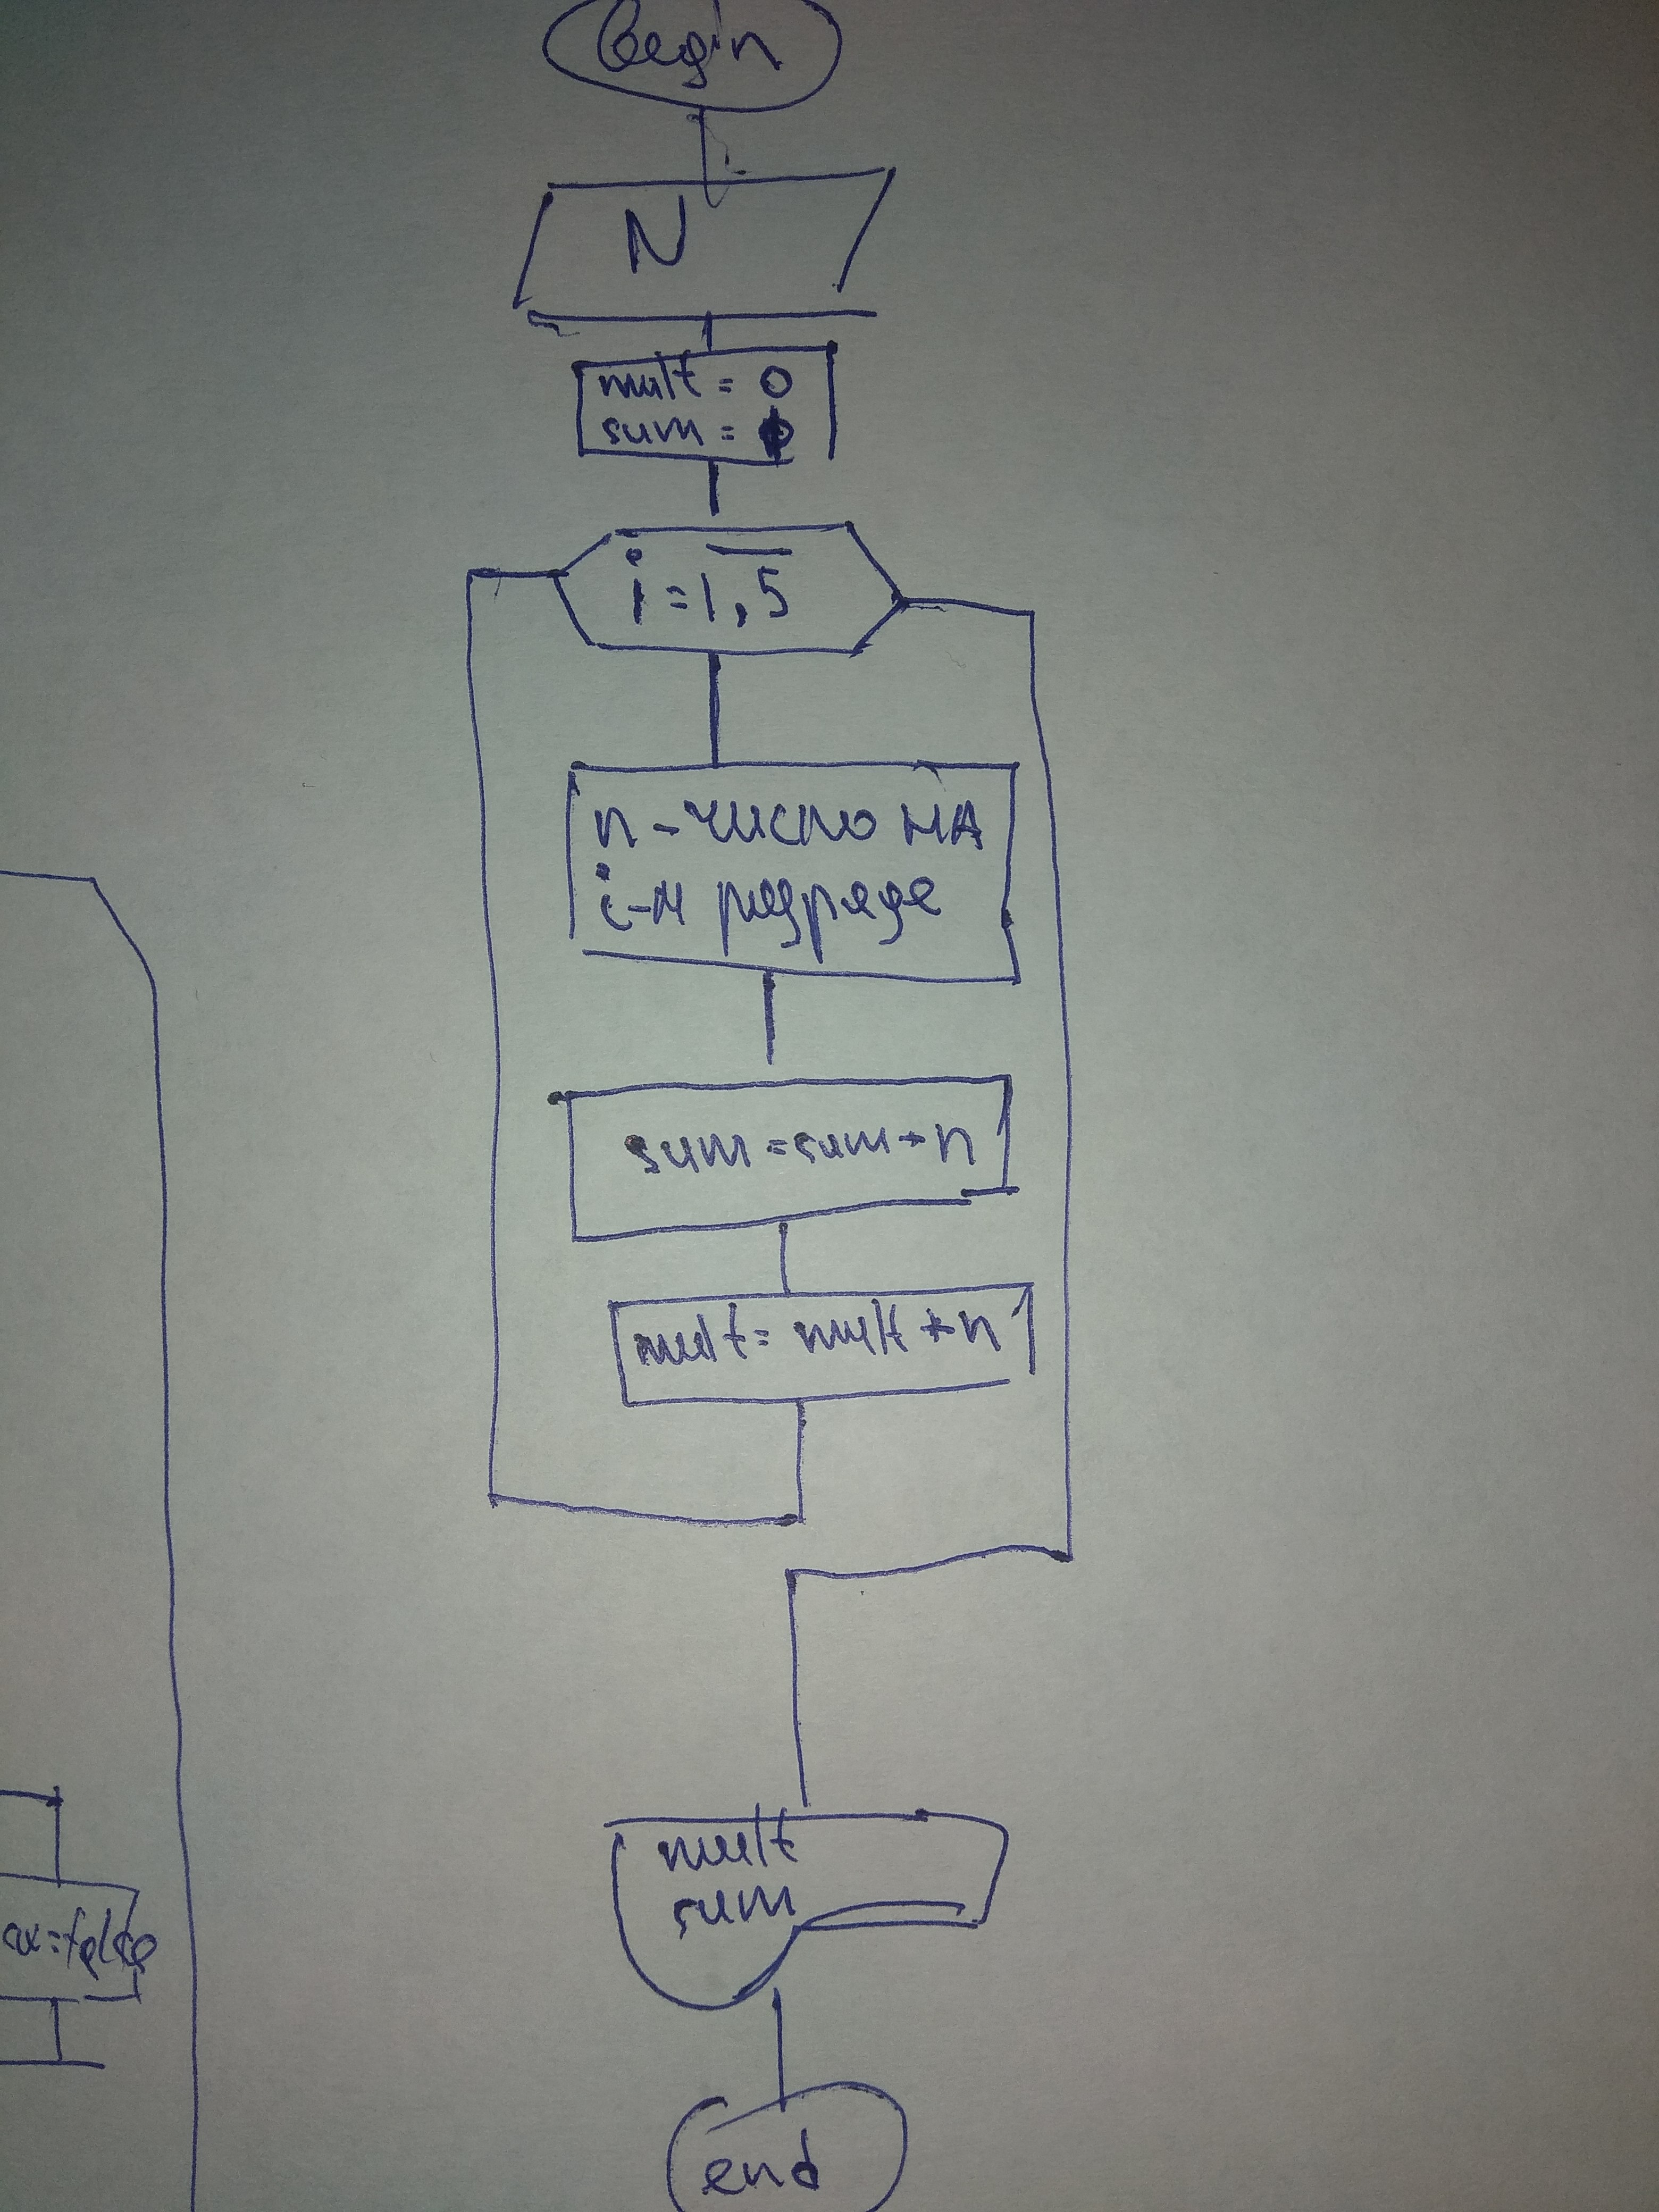 begin
N
mult = 0
sum =
i = 1, 5
n - число НА
i-м разряде
sum = sum + n
mult = mult * n
mult
sum
end
= false